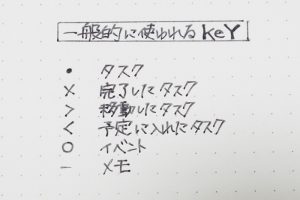 一般的に使われる KeY
• タスク
× 完了したタスク
> 移動したタスク
< 予定に入れたタスク
○ イベント
− メモ